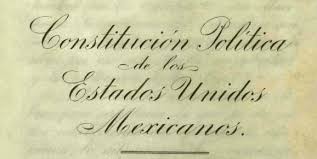 Constitución Política
de los
Estados Unidos
Mexicanos.